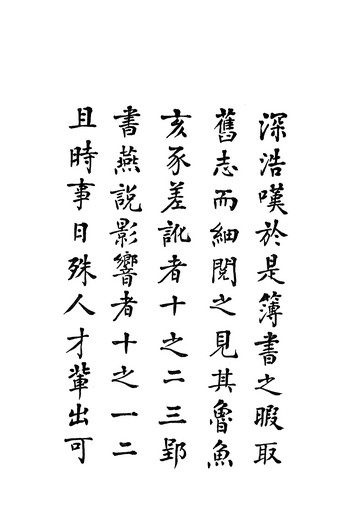 深浩嘆於是簿書之暇取
舊志而細閱之見其魯魚
亥豕差訛者十之二三郢
書燕說影響者十之一二
且時事日殊人才輩出可